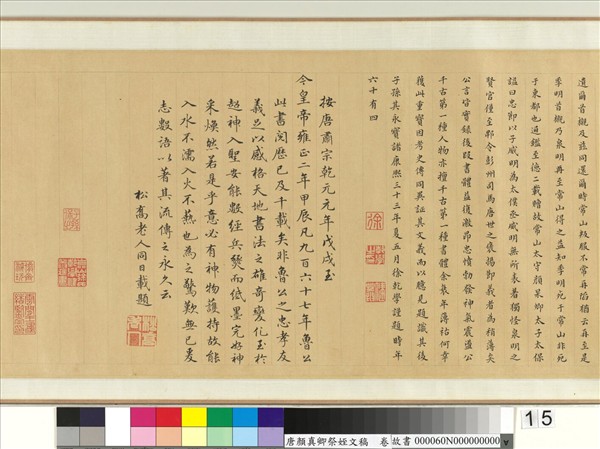 遺蘭首櫬及蕆同還爾時常山叛服不常再陷猶云再至是
季明首櫬乃泉明再至常山得之益知季明死于常山非死
于東都也通鑑至德二載贈故常山太守顏杲卿太子太保
謚曰忠節以子威明為太僕丞威明無所表著獨怪泉明之
賢官僅至郫令彭州司馬唐世之褒揚節義者為稍薄矣
公言皆實錄後段書體益復激昂忠憤勃發神氣震盪公
千古第一種人物亦擅千古第一種書體余衰年薄祜何幸
獲此重寶因考史傳同異証其文義而以臆見題識其後
子孫其永寶諸康熙三十三年夏五月徐乾學謹題時年
六十有四
按唐肅宗乾元元年戊戌至
今皇帝雍正二年甲辰凡九百六十七年魯公
此書閱歷已及千載矣非魯公之忠孝友
義足以感格天地書法之雄奇變化至於
超神入聖安能數經兵燹而紙墨完好神
采煥然若是乎意必有神物護持故能
入水不濡入火不爇也為之驚歎無已爰
志數語以著其流傳之永久云
松喬老人同日載題
15
唐顏真卿祭姪文稿 卷 故書 000060N000000000